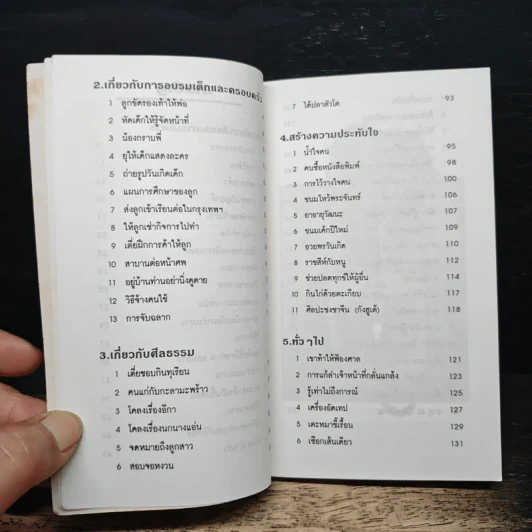 2.เกี่ยวกับการอบรมเด็กและครอบครัว
1 ลูกขัดรองเท้าให้พ่อ
2 หัดเด็กให้รู้จักหน้าที่
3 น้องกราบพี่
4 ยุให้เด็กแสดงละคร
5 ถ่ายรูปวันเกิดเด็ก
6 แผนการศึกษาของลูก
7 ส่งลูกเข้าเรียนต่อในกรุงเทพฯ
8 ให้ลูกเช่ากิจการไปทำ
9 เตี่ยฝึกการค้าให้ลูก
10 สาบานต่อหน้าศพ
11 อยู่บ้านท่านอย่านิ่งดูดาย
12 วิธีจ้างคนใช้
13 การจับฉลาก
3.เกี่ยวกับศีลธรรม
1 เตี่ยชอบกินทุเรียน
2 คนแก่กับกะลามะพร้าว
3 โคลงเรื่องอีกา
4 โคลงเรื่องนกนางแอ่น
5 จดหมายถึงลูกสาว
6 สอบจอหงวน
7 ได้ปลาตัวโต 93
4.สร้างความประทับใจ
1 น้ำใจคน 95
2 คนซื้อหนังสือพิมพ์ 98
3 การไว้วางใจคน 100
4 ขนมไหว้พระจันทร์ 106
5 ยาอายุวัฒนะ 107
6 ขนมเค้กปีใหม่ 109
7 อวยพรวันเกิด 110
8 ราชสีห์กับหนู 112
9 ช่วยปลดทุกข์ให้ผู้อื่น 114
10 กินไก่ด้วยตะเกียบ 116
11 ศิลปะชงชาจีน (กังฮูเต้) 118
5.ทั่วๆไป
1 เขาท้าให้ฟ้องศาล 121
2 การแก้ลำเจ้าหน้าที่กลั่นแกล้ง 123
3 รู้เท่าไม่ถึงการณ์ 125
4 เครื่องอัดเทป 127
5 เตะหมาขี้เรื้อน 129
6 เชือกเส้นเดียว 131